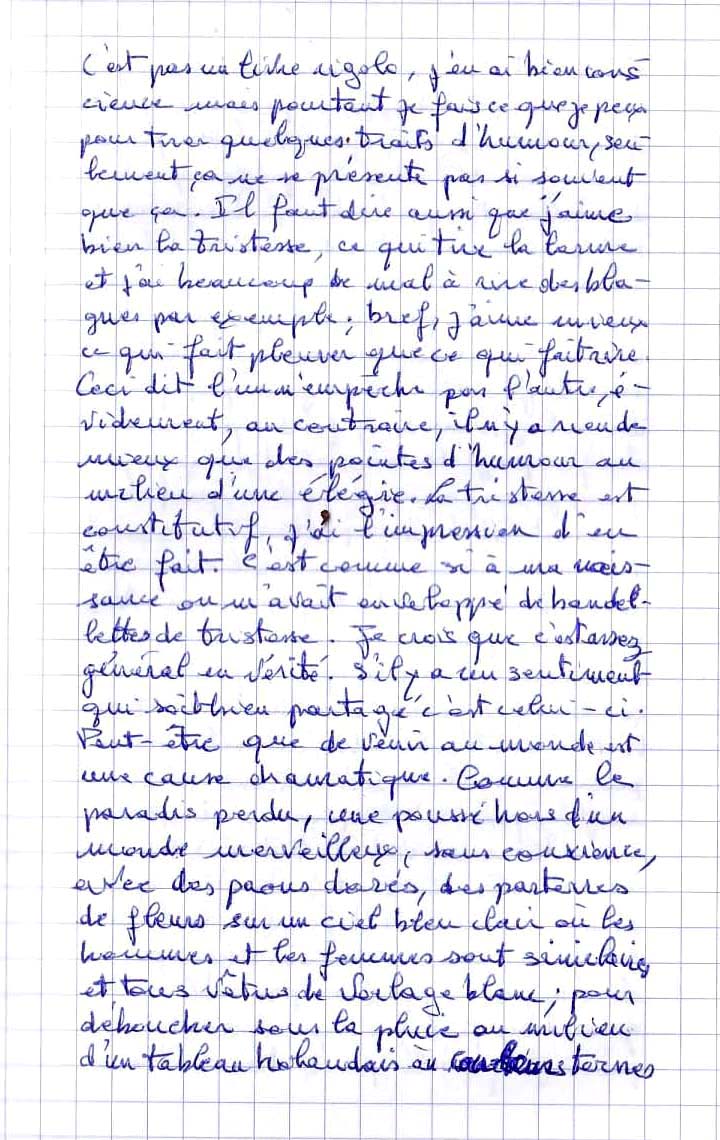 C'est pas un livre rigolo, j'en ai bien cons
cience mais pourtant je fais ce que je peux
pour tirer quelques traits d'humour, seu-
lement ça ne se présente pas si souvent
que ça. Il faut dire aussi que j'aime
bien la tristesse, ce qui tire la larme
et j'ai beaucoup de mal à rire des bla-
gues par exemple; bref, j'aime mieux
ce qui fait pleurer que ce qui fait rire.
Ceci dit l'un n'empêche pas l'autre, é-
videmment, au contraire, il n'y a rien de
mieux que des pointes d'humour au
milieu d'une élégie. La tristesse est
constitutif, j'ai l'impression d'en
être fait. C'est comme si à ma nais-
sance on m'avait enveloppé de bandel-
lettes de tristesse. Je crois que c'est assez
général en vérité. S'il y a un sentiment
qui soit bien partagé c'est celui-ci.
Peut-être que de venir au monde est
une cause dramatique. Comme le
paradis perdu, une poussé hors d'un
monde merveilleux, sans conscience,
avec des paons dorés, des parterres
de fleurs sur un ciel bleu clair où les
hommes et les femmes sont similaires
et tous vêtus de voilage blanc; pour
déboucher sous la pluie au milieu
d'un tableau hollandais au couleurs ternes